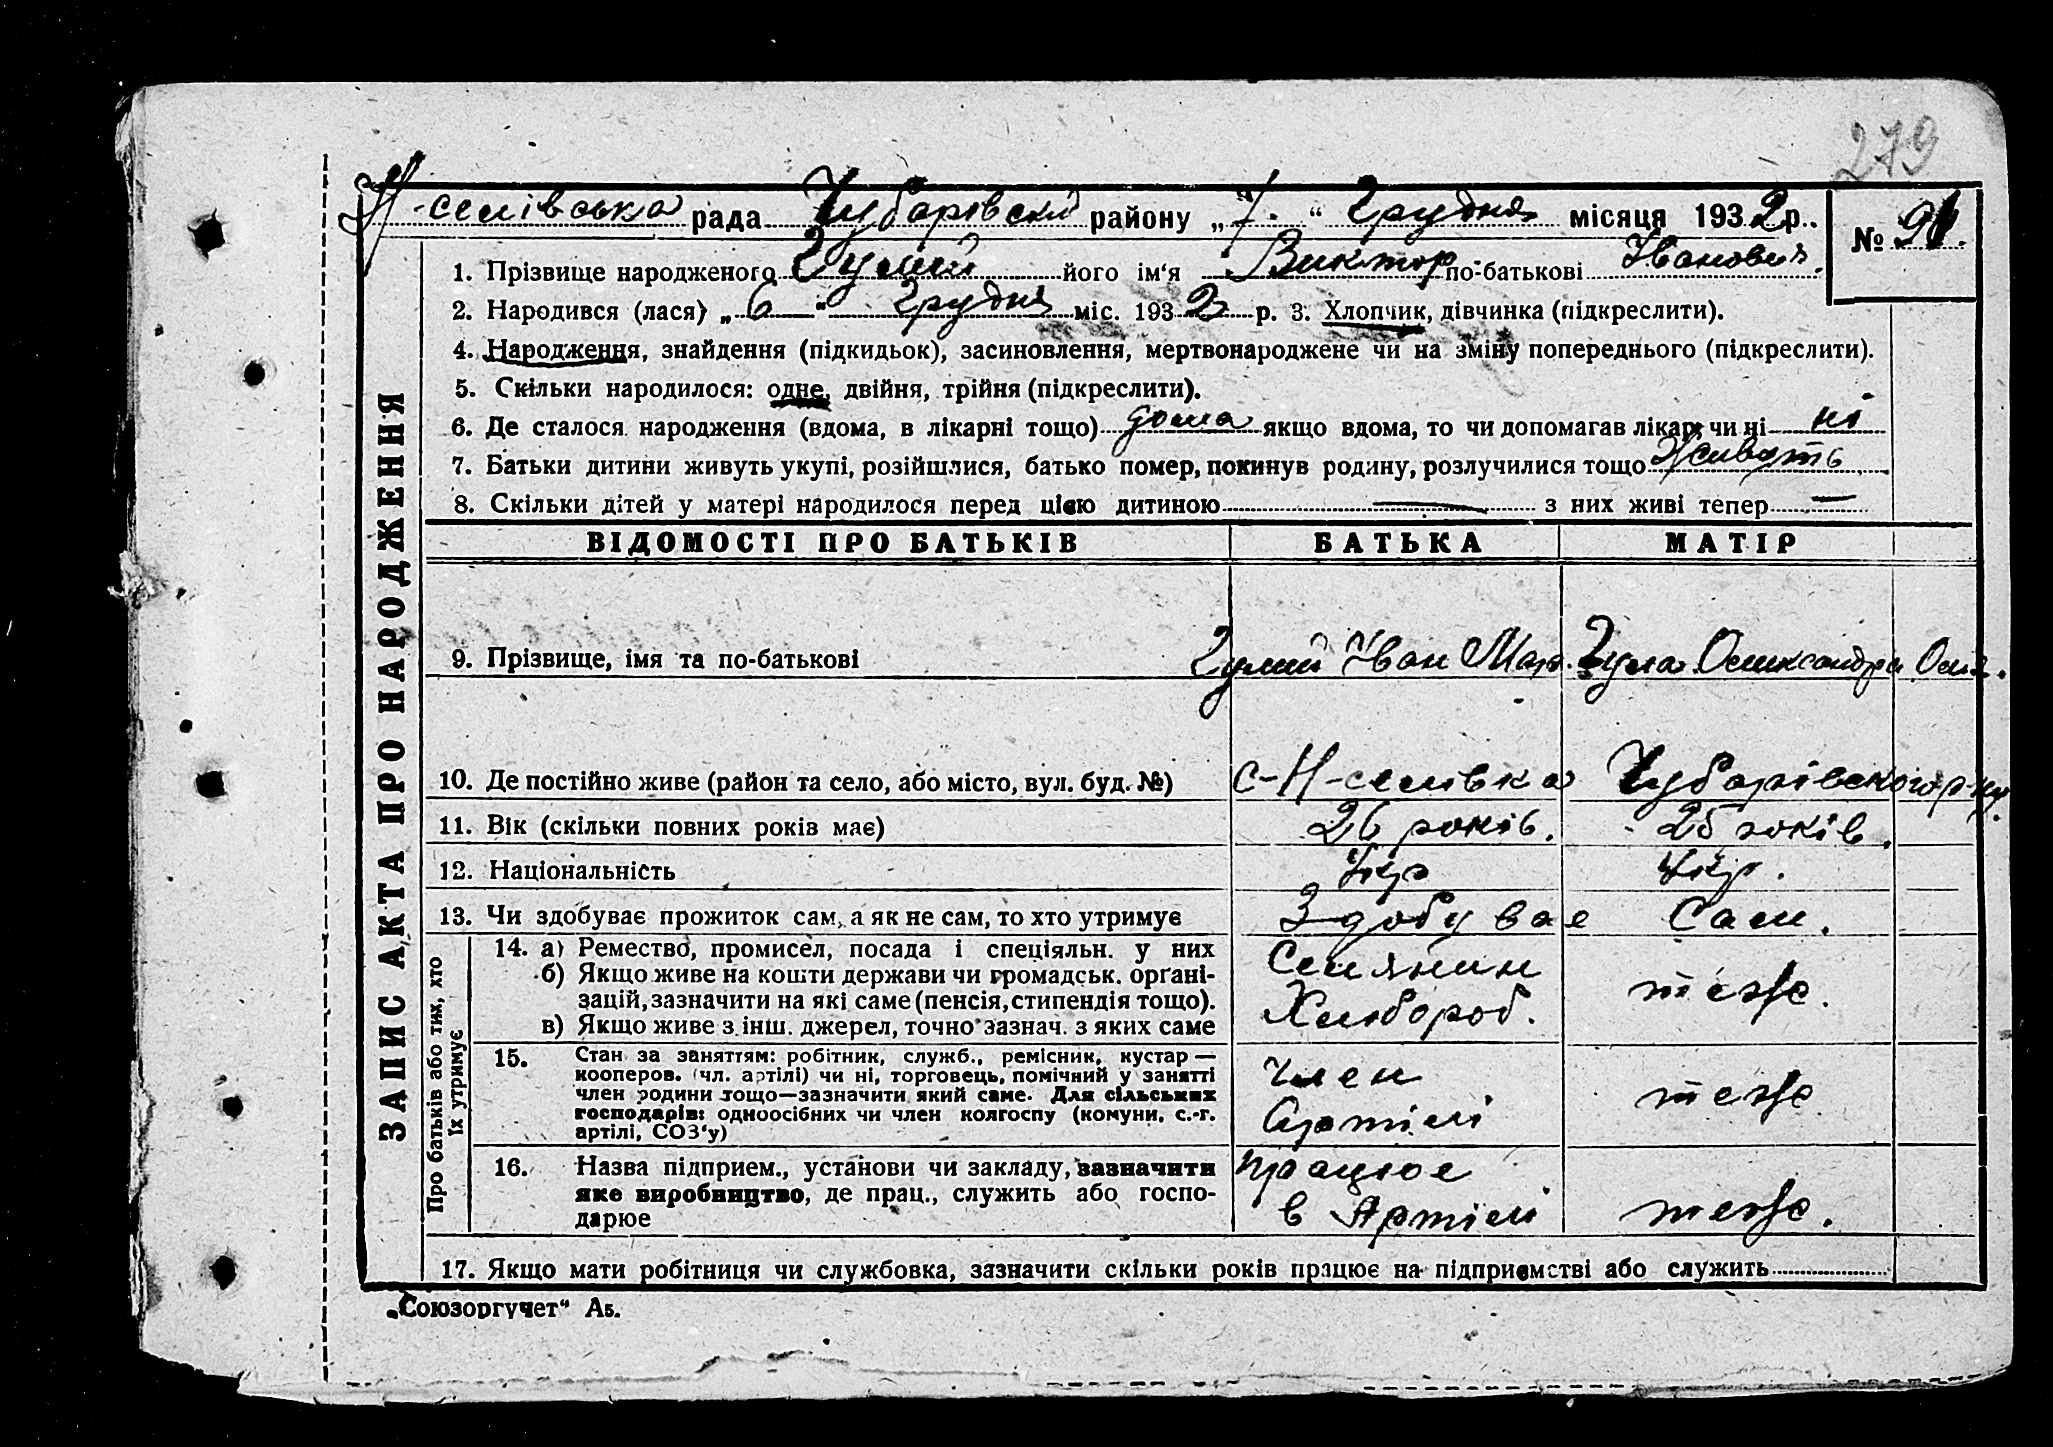 279
Н-семівська рада Чубарівский району „7“ Грудня місяця 1932 р.. № 91.
1. Прізвище народженого його ім‘я Виктор по-батькові Іванович.
2. Народився (лася) „6“ Грудня міс. 1932 р. 3. Хлопчик, дівчинка (підкреслити).
4. Народження, знайдення (підкидьок), засиновлення, мертвонароджене чи на зміну попереднього (підкреслити).
5. Скільки народилося: одне, двійня, трійня (підкреслити).
6. Де сталося народження (вдома, в лікарні тощо) дома якщо вдома, то чи допомагав лікар чи ні ні
7. Батьки дитини живуть укупі, розійшлися, батько помер, покинув родину, розлучилися тощо Живуть
8. Скільки дітей у матері народилося перед цією дитиною — з них живі тепер —
ЗАПИС АКТА ПРО НАРОДЖЕННЯ
ВІДОМОСТІ ПРО БАТЬКІВ БАТЬКА МАТІР
9. Прізвище, імя та по-батькові Іван
10. Де постійно живе (район та село, або місто, вул. буд. №) с-Н-семівка Чубарівского р-ну.
11. Вік (скільки повних років має) 26 років. 25 років.
12. Національність Укр Укр.
13. Чи здобуває прожиток сам, а як не сам, то хто утримує Здобувае Сам.
Про батьків або тих, хто їх утримує
14. а) Ремество, промисел, посада і спеціяльн. у них Селянин
б) Якщо живе на кошти держави чи громадськ. орґані-
зацій, зазначити на які саме (пенсія, стипендія тощо). Хлібороб. теж.
в) Якщо живе з інш. джерел, точно зазнач. з яких саме
15. Стан за заняттям: робітник, служб., ремісник, кустар —
кооперов. (чл. артілі) чи ні, торговець, помічний у занятті Член
член родини тощо—зазначити який саме. Для сільських теж
господарів: одноосібних чи член колгоспу (комуни, с.-г. Артілі
артілі, СОЗ‘у)
16. Назва підприєм., установи чи закладу, зазначити працюе
яке виробництво, де прац., служить або госпо- в Артілі теж.
дарює
17. Якщо мати робітниця чи службовка, зазначити скільки років працює на підприємстві або служить
„Союзоргучет“ А5.